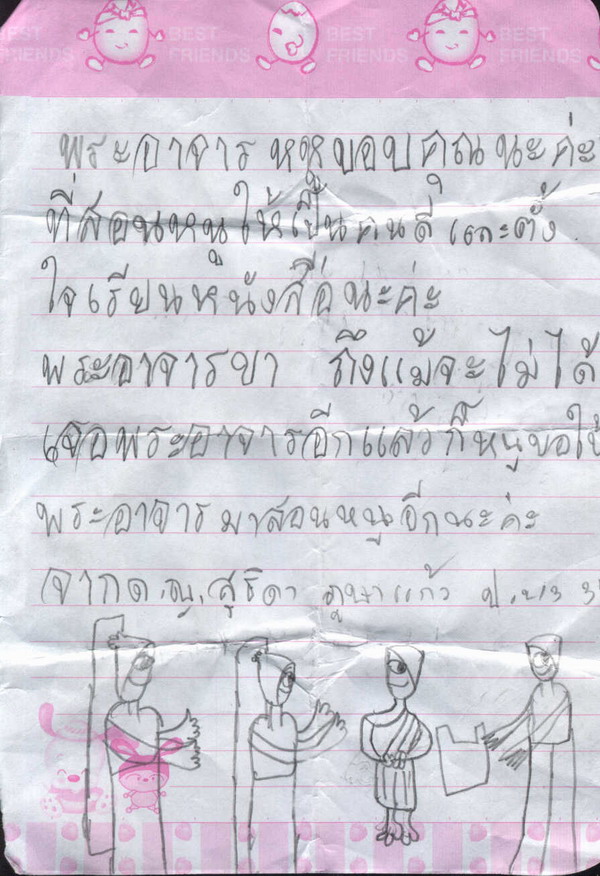 BEST FRIENDS BEST FRIENDS BEST FRIENDS
พระอาจาร หนูขอบคุณ นะค่ะ
ที่สอนหนูให้เป็นคนดี และตั้ง
ใจเรียนหนังสือนะค่ะ
พระอาจารขา ถึงแม้จะไม่ได้
เจอพระอาจารอีกแล้วก็หนูขอให้
พระอาจารมาสอนหนูอีกนะค่ะ
จากด.ญ.สุธิดา ภูษาแก้ว ป.